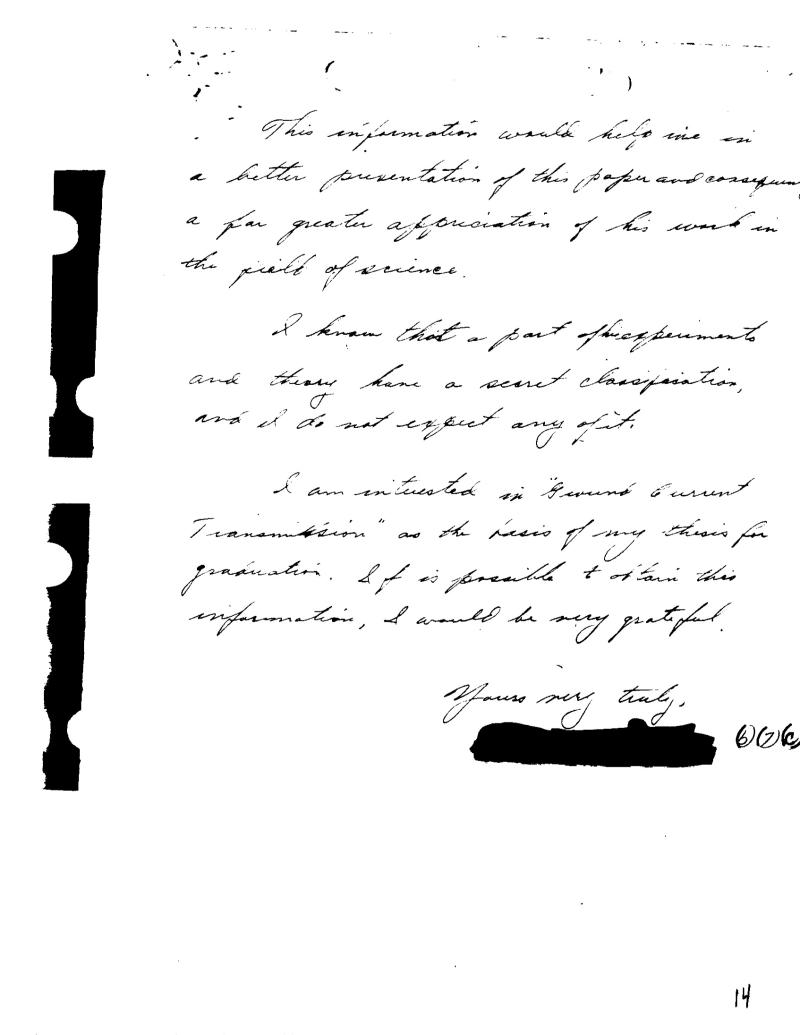 This information would help me in
a better presentation of this paper and consequen
a far greater appreciation of his work in
the field of science.
I know that a part of his experiments
and theory have a secret classification,
and I do not expect any of it.
I am interested in "Ground Current
Transmission" as the basis of my thesis for
graduation. If is possible t obtain this
information, I would be very grateful.
Yours very truly,
(b)(7)(c)
14